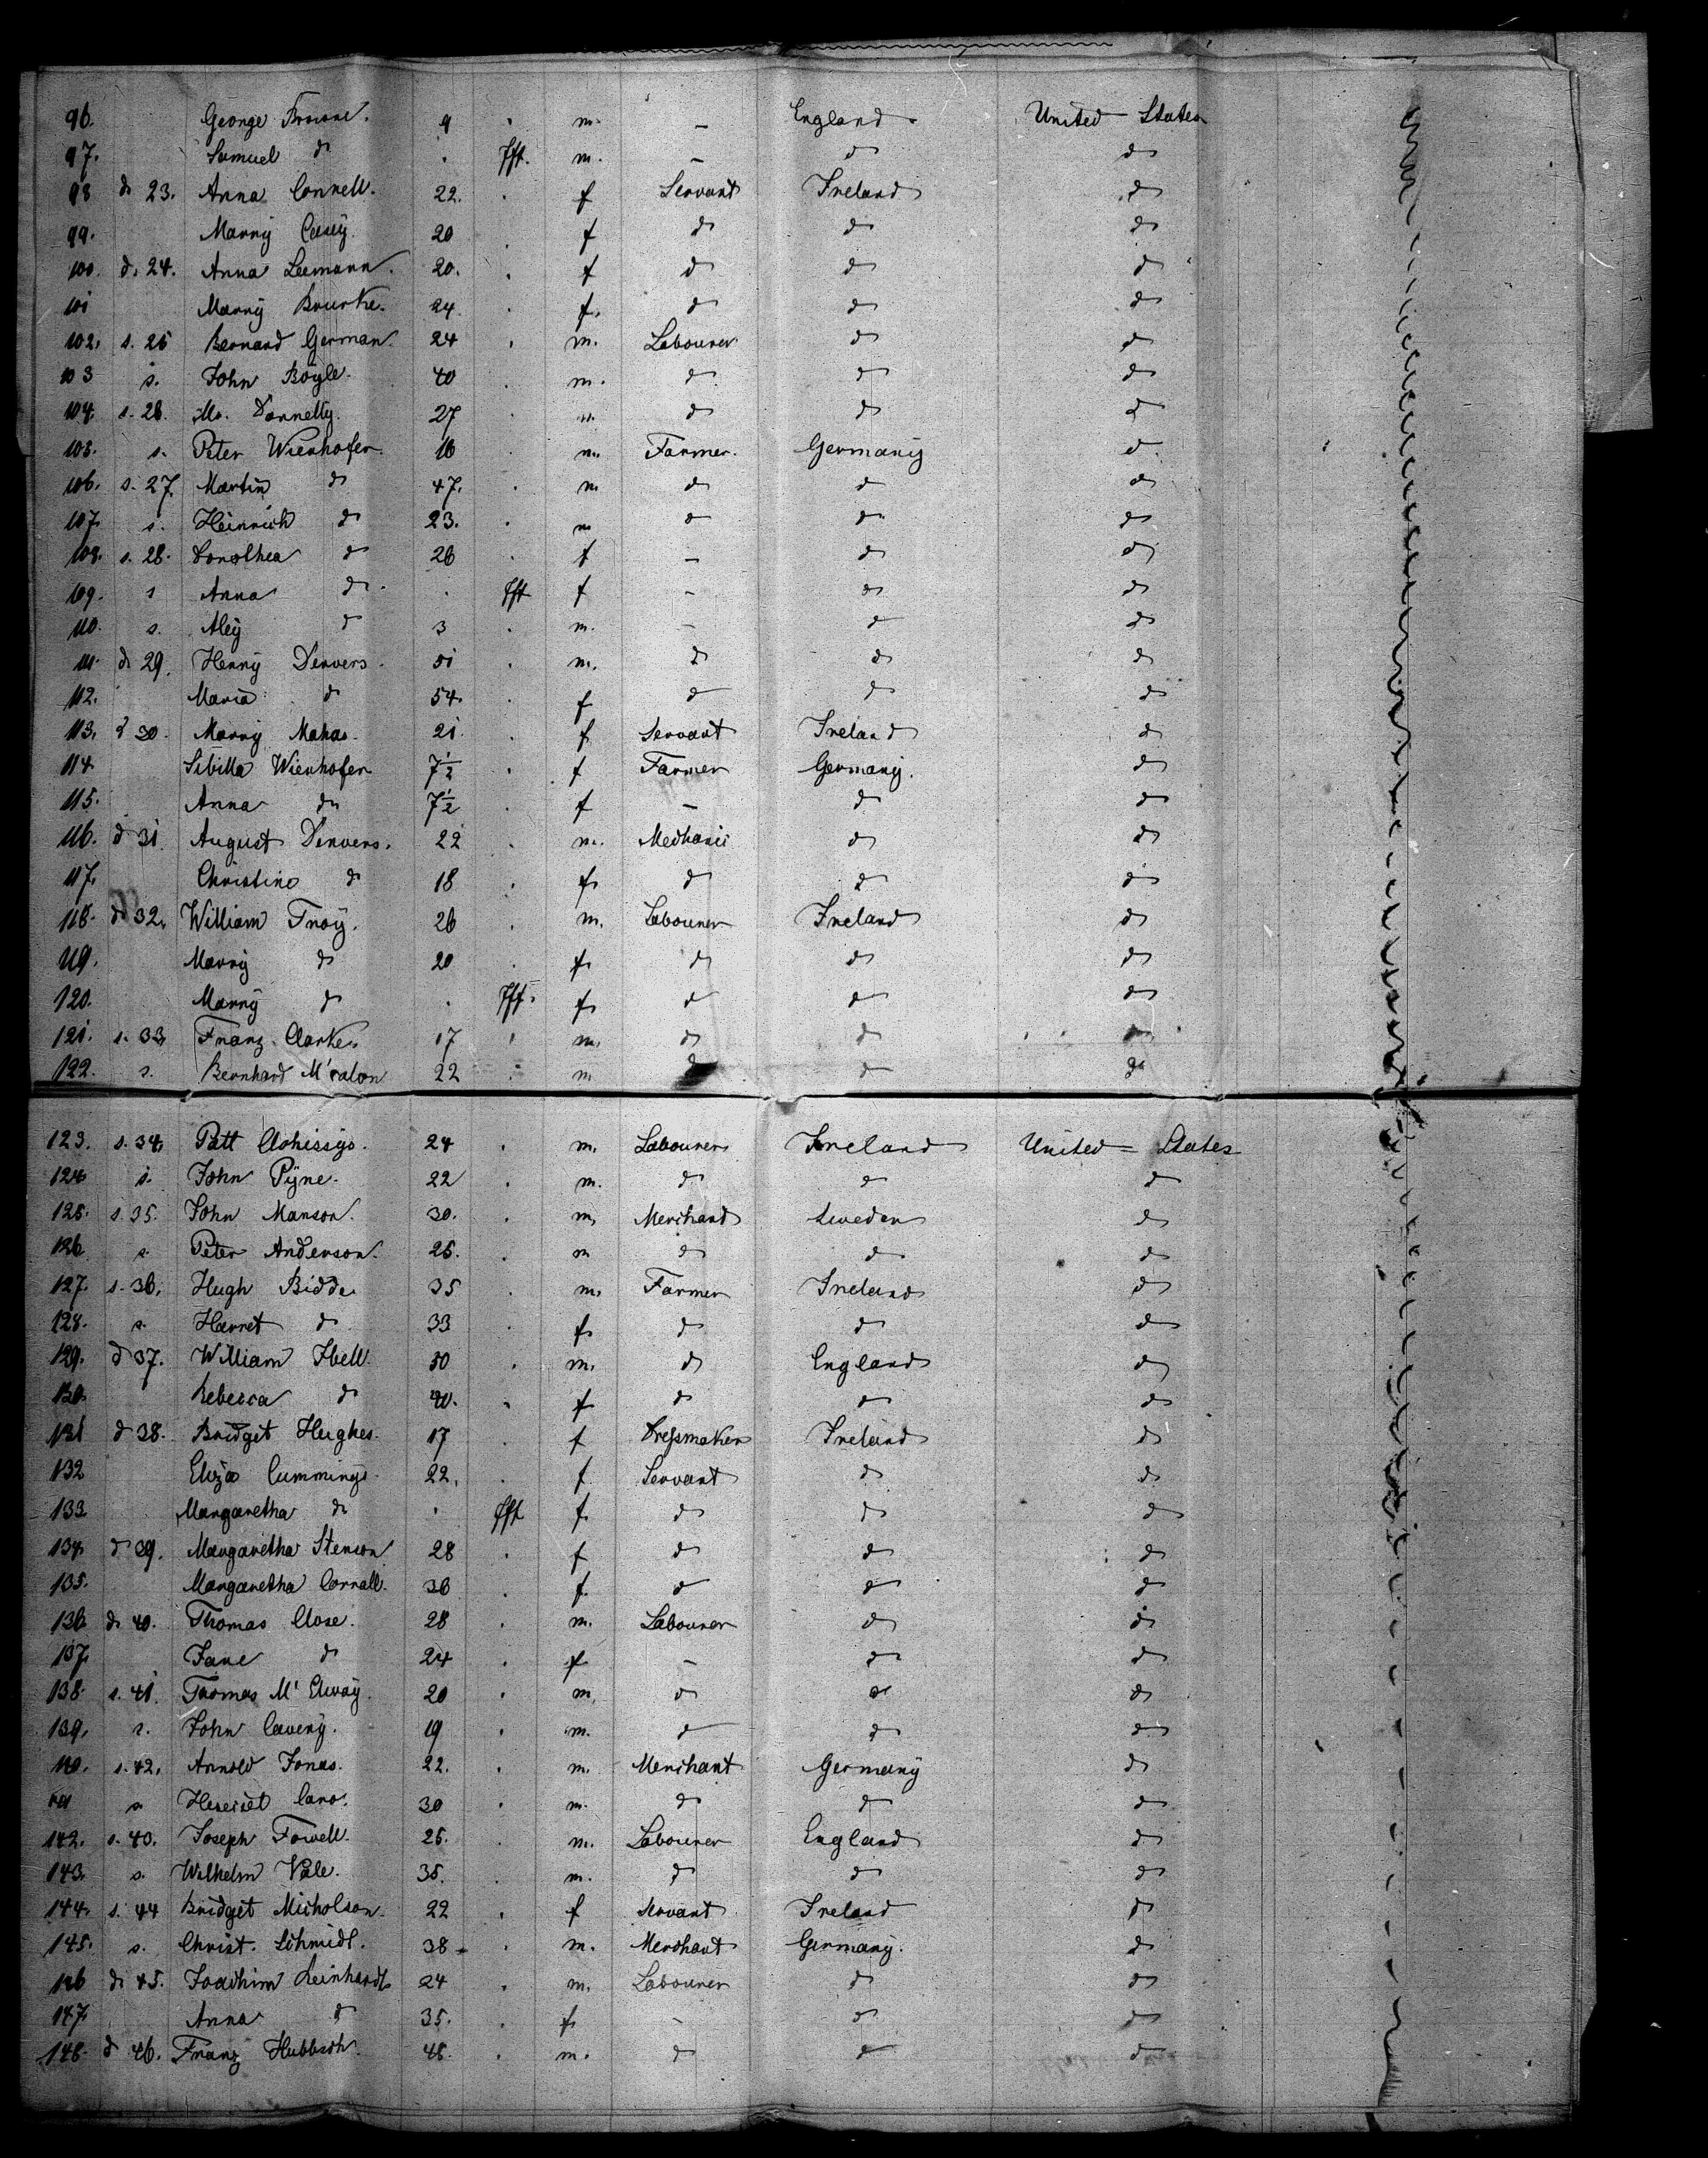 96. George Browne. 9 . m. – England. United States
97. Samuel do . Jft. m. – do do
98 do 23. Anna Connell. 22. . f Servant Ireland do
99. Marry Casey. 20 . f do do do
100. d. 24. Anna Leemann. 20. . f do do do
101 Marry Bourke. 24. . f. do do do
102. s. 25 Bernard German. 24 . m. Labourer do do
103 s. John Boyle. 40 . m. do do do
104. s. 26. Mr. Donnelly. 27 . m. do do do
105. s. Peter Wienhofer. 16 . m. Farmer. Germany do
106. s. 27. Martin do 47. . m do do do
107. s. Heinrich do 23. . m do do do
108. s. 28. Dorothea do 26 . f – do do
109. s Anna do . Jft f – do do
110. s. Aley do 3 . m. – do do
111. do 29. Henry Denvers. 51 . m. do do do
112. Maria do 54. . f do do do
113. d 30. Marry Mahas. 21. . f. Servant Ireland do
114. Sibilla Wienhofer 7½ . f Farmer Germany. do
115. Anna do 7½ . f – do do
116. d 31 August Denvers. 22 . m. Mechanic do do
117. Christine do 18 . f. do do do
118. do 32. William Troy. 26 . m. Labourer Ireland do
119. Marry do 20 . f. do do do
120. Marry do . Jft. f. do do do
121. s. 33. Franz Clarke. 17 . m. do do do
122. s. Bernhard 22 . m do do do
123. s. 34. Patt 24 . m. Labourer Ireland United States
124. s. John Pyne. 22 . m. do do do
125. s. 35. John Manson. 30. . m. Merchand Sweden do
126. s. Peter Anderson. 25. . m do do do
127. s. 36. Hugh Bidde. 35 . m. Farmer Ireland do
128. s. Harret do 33 . f. do do do
129. d 37. William Ibell. 50 . m. do England do
130. Rebecca do 40. . f do do do
131 d 38. Bridget Hughes. 17 . f Dressmaker Ireland do
132 Eliza Cummings. 22. . f. Servant do do
133. Margaretha do . Jft f. do do do
134. d 39. Margaretha Stenson 28 . f do do do
135. Margaretha Connall. 36 . f. do do do
136. do 40. Thomas Close. 28 . m. Labourer do do
137. Jane do 24 . f – do do
138. s. 41. Thomas Mc Elway. 20 . m. do do do
139. s. John Caveny. 19 . m. do do do
140. s. 42. Arnold Jonas. 22. . m. Merchant Germany do
141 s. Caro. 30 . m. do do do
142. s. 43. Joseph Fowell. 25. . m. Labourer England do
143. s. Wilhelm Vale. 35. . m. do do do
144. s. 44 Bridget Nicholson. 22 . f Servant Ireland do
145. s. Christ. Schmidt. 38. . m. Merchant Germany. do
146 do 45. Joachim Reinhardt. 24 . m. Labourer do do
147. Anna do 35. . f. – do do
148. d 46. Franz 48. . m. do do do